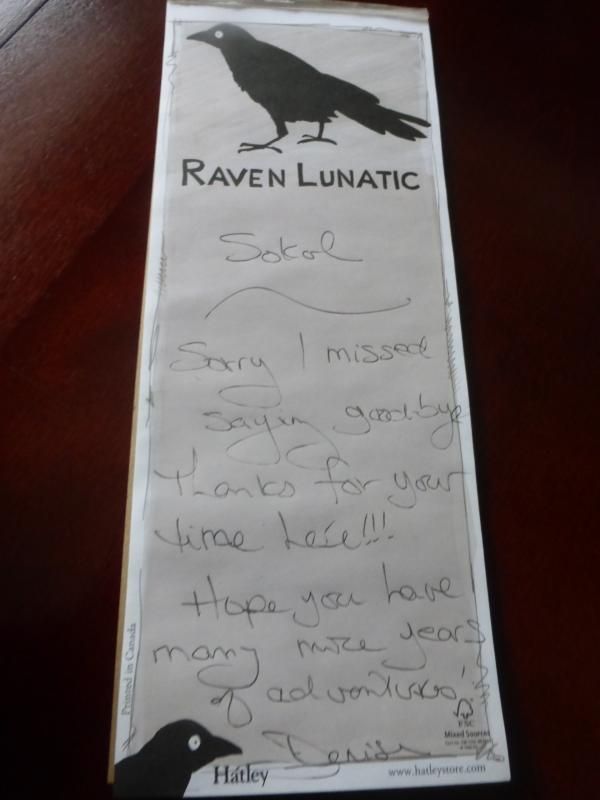 RAVEN LUNATIC
Sokol
Sorry I missed
saying goodbye
Thanks for your
time here!!!
Hope you have
many more years
of adventures!
Denise
Printed in Canada
FSC
Mixed Sources
Hatley
www.hatleystore.com